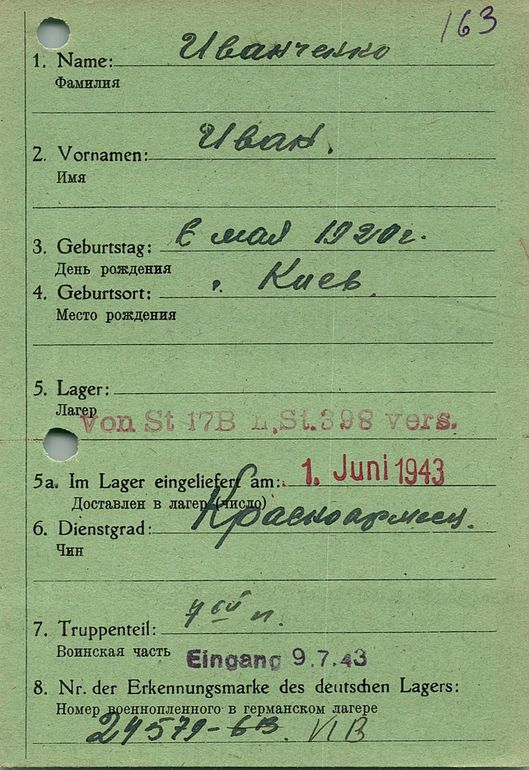 163
1. Name: Иванченко
Фамилия
2. Vornamen: Иван.
Имя
3. Geburtstag: 6 мая 1920 г.
День рождения
4. Geburtsort: г. Киев.
Место рождения
5. Lager:
Лагер
von St 17B n. St. 398 vers.
5a. Im Lager eingeliefert am: 1. Juni 1943
Доставлен в лагер (число)
6. Dienstgrad: Красноармеец.
Чин
7. Truppenteil:
Воинская часть Eingang 9.7.43
8. Nr. der Erkennungsmarke des deutschen Lagers:
Номер военнопленного в германском лагере
24579-